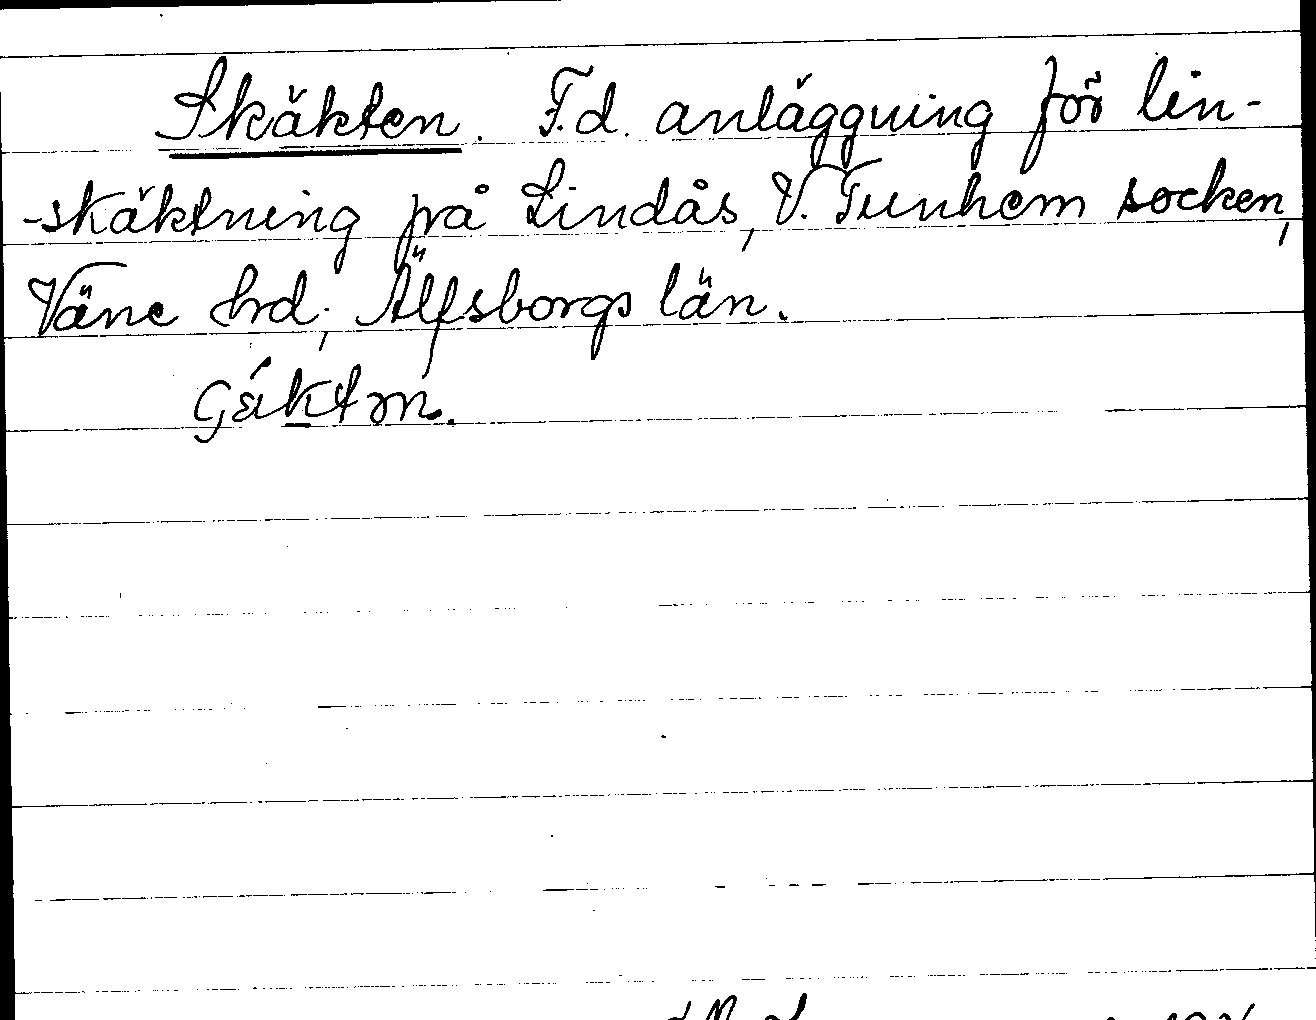 Skäkten. F.d. anläggning för lin-
-skäktning på Lindås, V. Tunhem socken,
Väne hrd; Älfsborgs län.